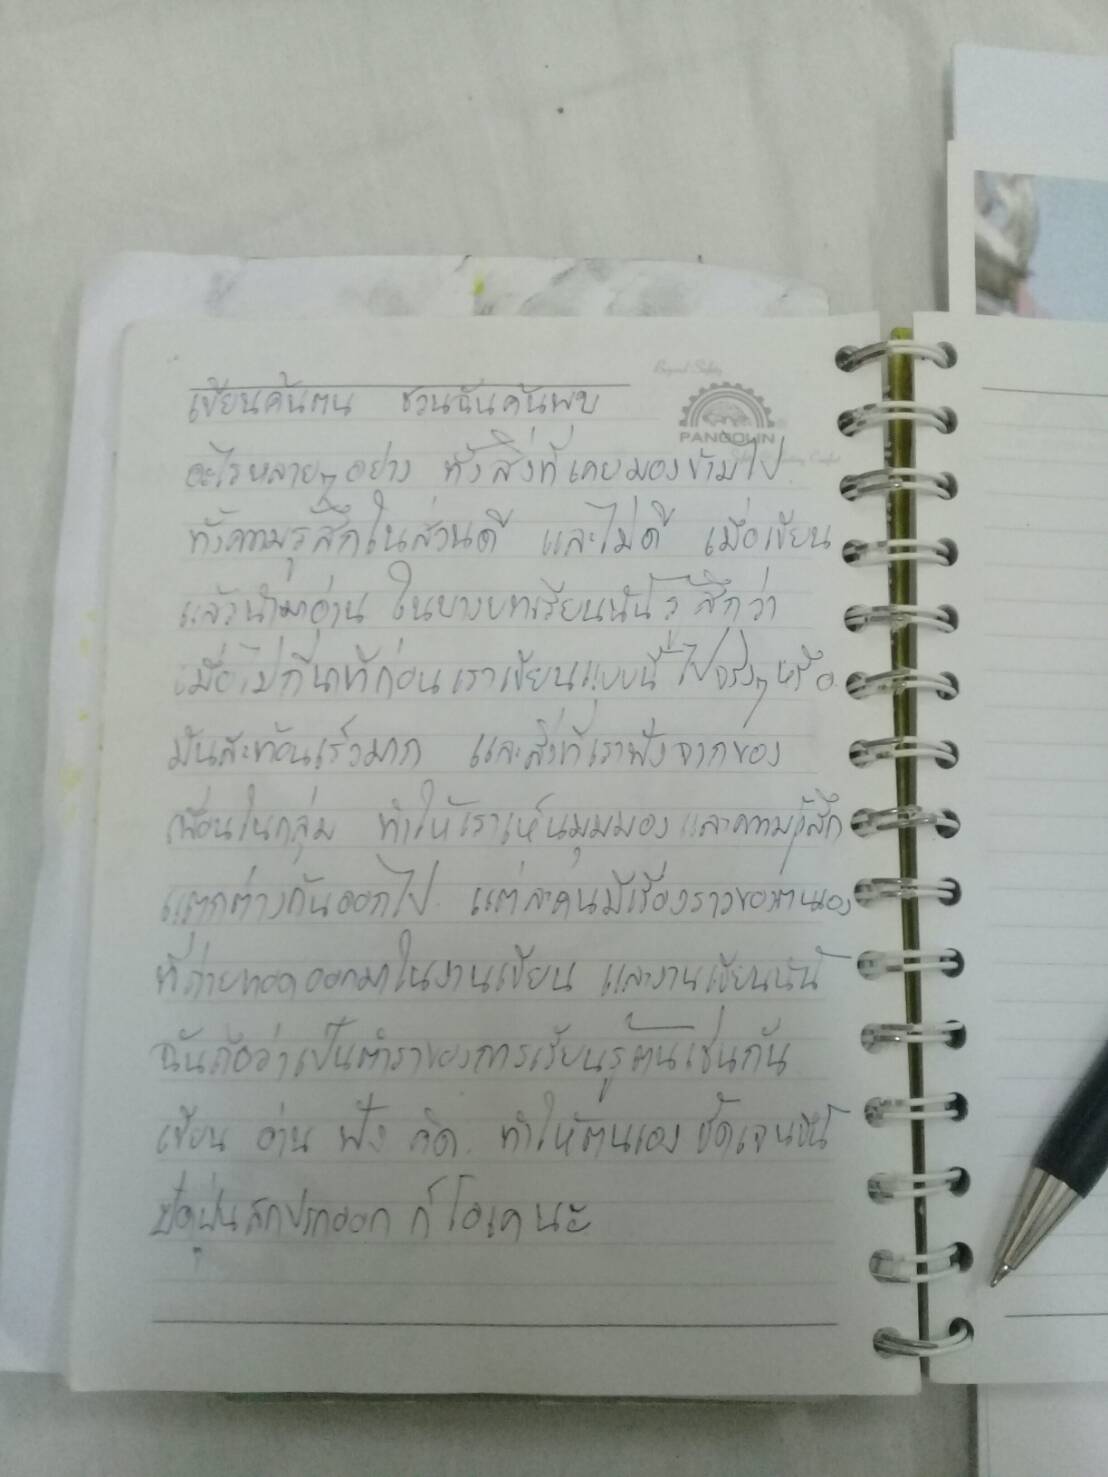 Beyond Safety
เขียนค้นตน ชวนฉันค้นพบ
PANGOLIN
อะไรหลายๆ อย่าง ทั้งสิ่งที่เคยมองข้ามไป
ทั้งความรู้สึกในส่วนดี และไม่ดี เมื่อเขียน
แล้วนำมาอ่าน ในบางบทเรียนนั้นรู้สึกว่า
เมื่อไม่กี่นาทีก่อน เราเขียนแบบนี้ไปจริงๆ หรือ
มันสะท้อนเร็วมาก และสิ่งที่เราฟังจากของ
เพื่อนในกลุ่ม ทำให้เราเห็นมุมมอง และความรู้สึก
แตกต่างกันออกไป แต่ละคนมีเรื่องราวของตนเอง
ที่ถ่ายทอดออกมาในงานเขียน และงานเขียนนั้น
ฉันถือว่าเป็นตำราของการเรียนรู้ตนเช่นกัน
เขียน อ่าน ฟัง คิด ทำให้ตนเอง ชัดเจนขึ้น
ปัดฝุ่นสกปรกออก ก็โอเคนะ